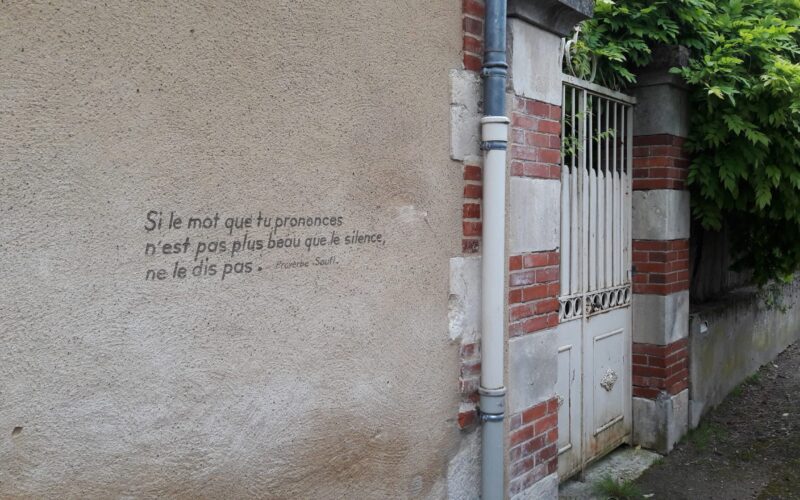 Si le mot que tu prononces
n'est pas plus beau que le silence,
ne le dis pas. Proverbe Soufi.